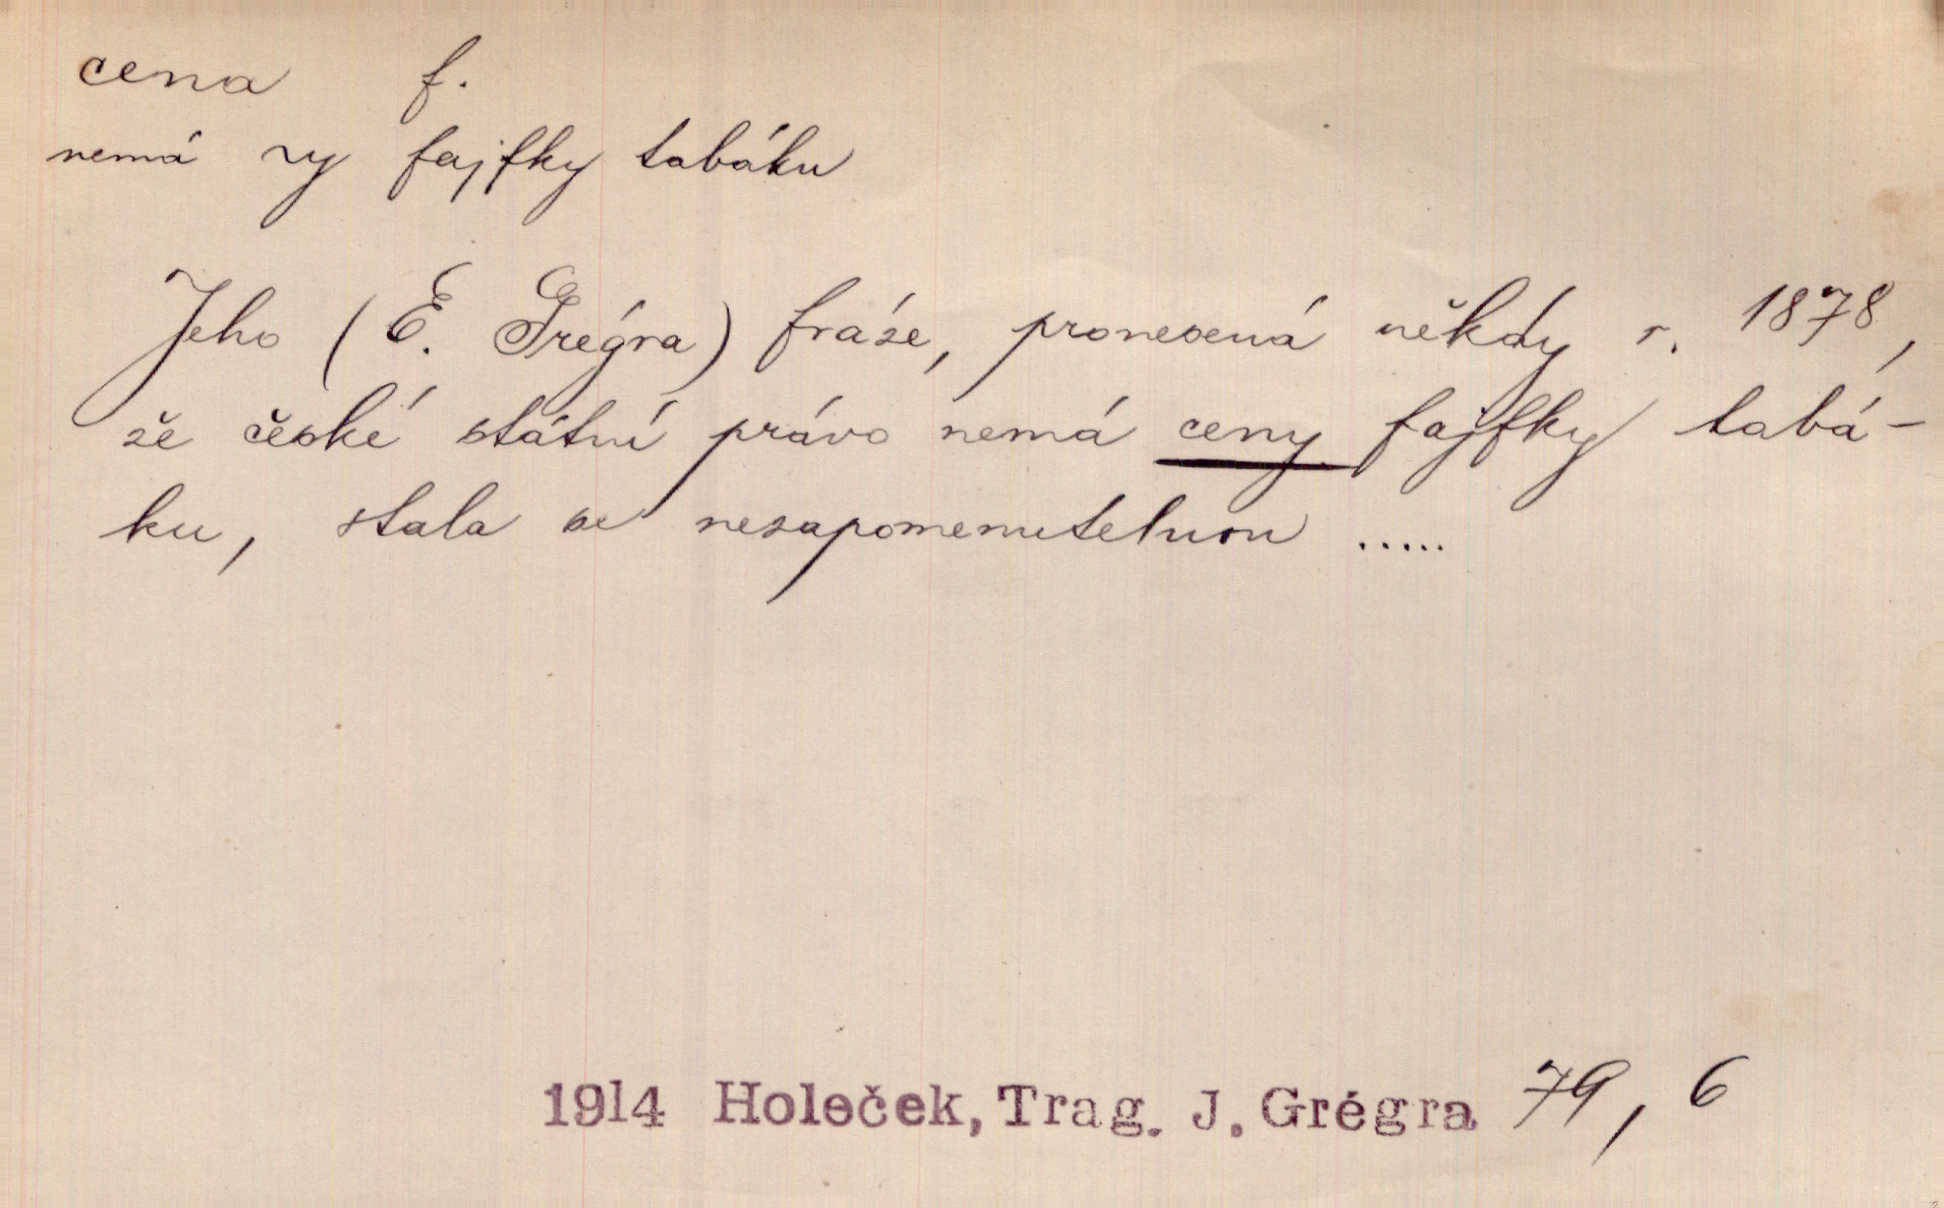 cena f.
nemá ny fajfky tabáku
Jeho (E. Grégra) fráze, pronesená někdy r. 1878,
že české státní právo nemá ceny fajfky tabá-
ku, stala se nezapomenutelnou .....
1914 Holeček, Trag. J. Grégra 79, 6